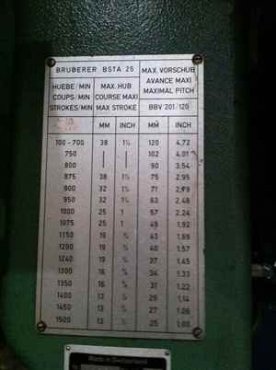 BRUDERER BSTA 25 MAX. VORSCHUB
AVANCE MAXI
MAXIMAL PITCH
HUEBE/MIN MAX. HUB
COUPS/MIN COURSE MAXI
STROKES/MIN MAX STROKE BBV 201/120
MM INCH MM INCH
100-700 38 1½ 120 4.72
750 102 4.01
800 90 3.54
875 38 1½ 75 2.95
900 32 1¼ 71
950 32 1¼ 63 2.48
1000 25 1 57 2.24
1075 25 1 49 1.92
1150 19 ¾ 1.69
1200 19 ¾ 40 1.57
1240 19 ¾ 37 1.45
1300 16 34 1.33
1350 16 31 1.22
1400 13 29 1.14
1450 13 27 1.06
1500 13 25
Made in Switzerland